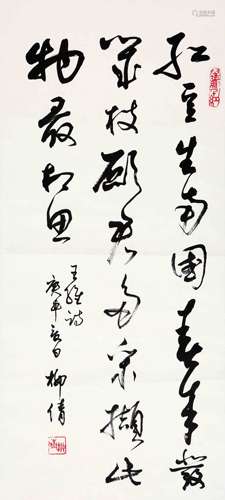 紅豆生南國春来發
幾枝願君多采擷此
物最相思
王維詩
庚申夏日 柳倩